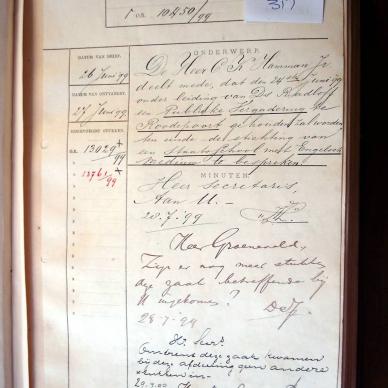 r on. 10450/99
317
DATUM VAN BRIEF.
26 Juni '99
DATUM VAN ONTVANGST.
27 Juni '99
GEREGISTREERDE STUKKEN.
R.R. 13029/99
13761/99
ONDERWERP.
De Heer C. Hamman Jr
deelt mede, dat den 24sten Juni '99
onder leiding van Ds Radloff
een Publieke Vergadering te
Roodepoort gehouden zal worden
ten einde de stichting van
een Staatsschool met Engelsch
medium te bespreken
MINUTEN.
Heer Secretaris,
Aan U.—
28.7.'99
Heer Groeneveld,
Zijn er nog meer stukken
deze zaak betreffende bij
U ingekomen?
28-7-99
Omtrent deze zaak kwamen
bij deze afdeeling geen andere
stukken in.